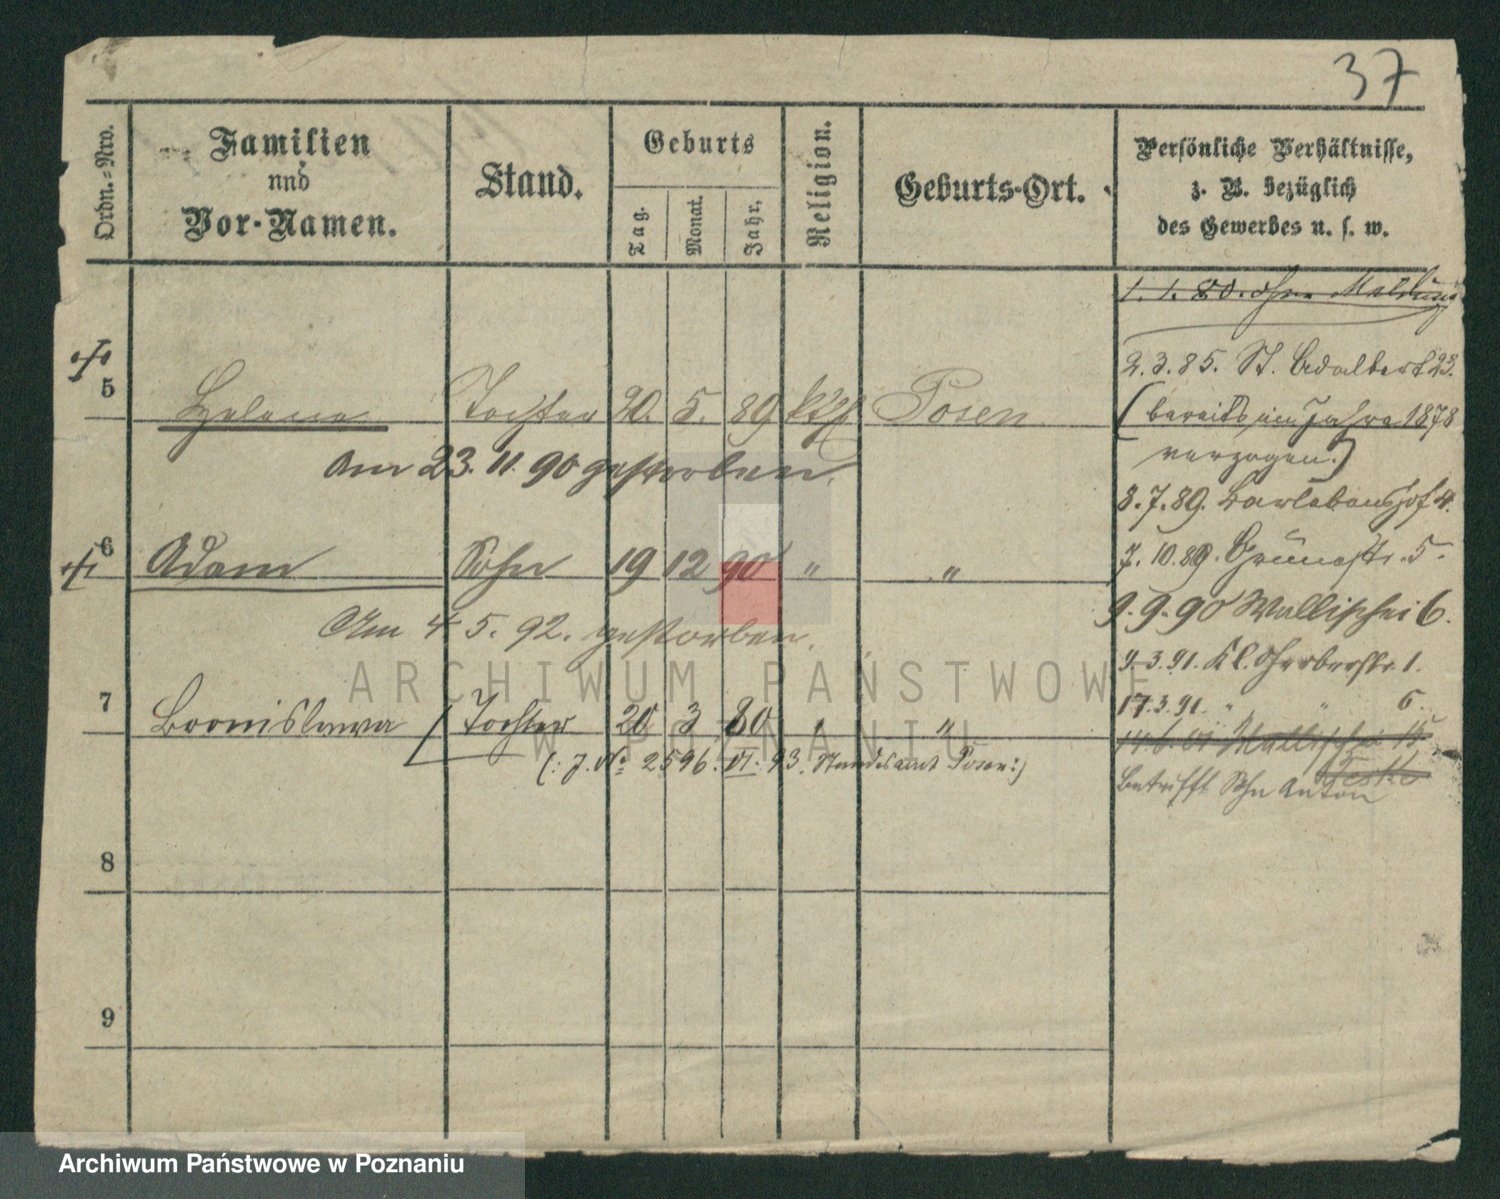 37
Ordn.-Nro.
Familien
und
Vor-Namen.
Stand.
Geburts
Tag.
Monat.
Jahr.
Religion.
Geburts-Ort.
Persönliche Verhältnisse,
z. B. bezüglich
des Gewerbes u. s. w.
1. 1. 80. ohne Meldung
2. 3. 85. St. Adalbert 23.
5 Helena Tochter 20. 5. 89 kth Posen
(bereits im Jahre 1878
verzogen.)
am 23. 11. 90 gestorben.
8. 7. 89. 4.
6 Adam Sohn 19 12 90 " "
7. 10. 89. Grünestr. 5.
9. 9. 90 Wallischei 6.
Am 4 5. 92. gestorben.
9. 3. 91. Kl. Gerberstr. 1.
7 Bronislawa Tochter 20 3 80 " "
17. 3. 91. " " 6.
Wallischei
(: J. No 2596. VI. 93. Standesamt Posen :)
Betrifft Sohn Anton
8
9
ARCHIWUM PAŃSTWOWE
W POZNANIU
Archiwum Państwowe w Poznaniu